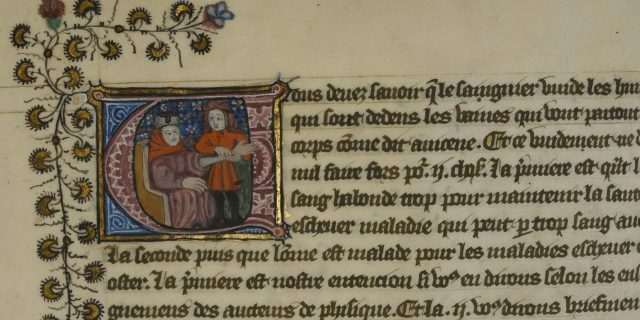 ous deuez sauoir q̃ le saignier vuide les hu
qui sont dedens les vaines qui vont par tout
corps cõme dit auicene. Et ce vuidement ne d
nul faire fors po². ij. chos̃. La p̃miere est q̃ˡ t
sang habonde trop pour maintenir la san
escheuer maladie qui peut p trop sang au
La seconde puis que lõme est malade pour les maladies escheuer
oster. La p̃miere est nostre entencion si vo⁹ en dirons selon les en
gnemens des aucteurs de phisique. Et la. ij. vo⁹ dirons briefmen